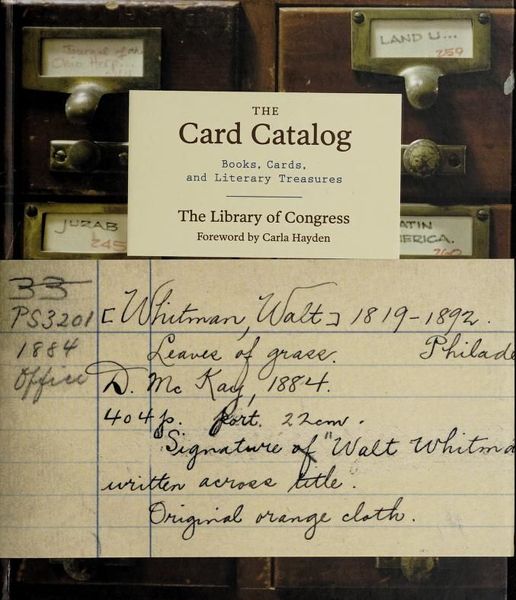 Journal of the
Ohio Herp...
LAND U...
259
THE
Card Catalog
Books, Cards,
and Literary Treasures
The Library of Congress
Foreword by Carla Hayden
JUZAB
245
LATIN
AMERICA.
260
33
PS3201 [Whitman, Walt] 1819-1892.
1884 Leaves of grass. Philade
Office D. McKay, 1884.
404p. port. 22cm.
Signature of "Walt Whitma
written across title.
Original orange cloth.